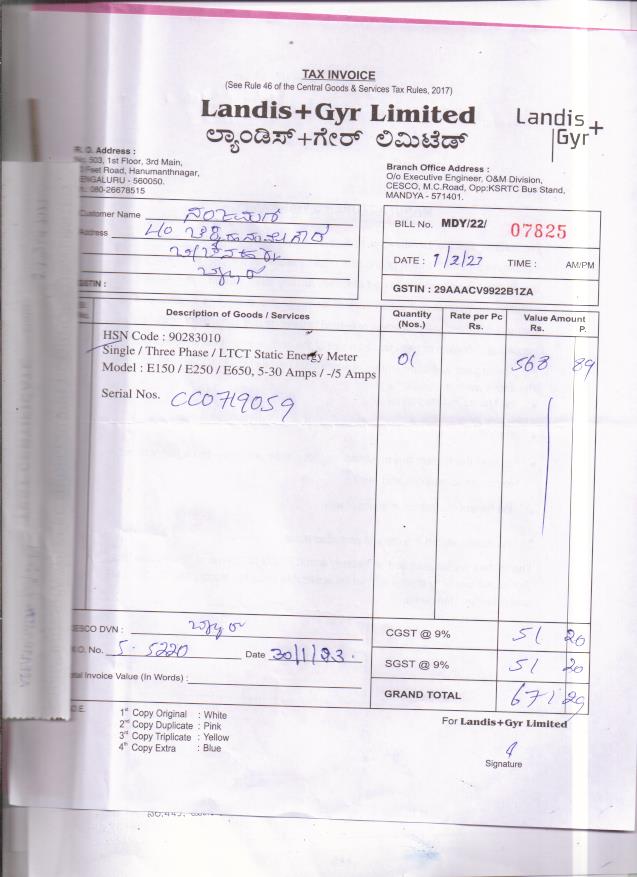 TAX INVOICE
(See Rule 46 of the Central Goods & Services Tax Rules, 2017)
Landis+Gyr Limited
ಲ್ಯಾಂಡಿಸ್+ಗೇರ್ ಲಿಮಿಟೆಡ್
Landis+
Gyr
R. O. Address :
No. 503, 1st Floor, 3rd Main,
Feet Road, Hanumanthnagar,
BENGALURU - 560050.
080-26678515
Branch Office Address :
O/o Executive Engineer, O&M Division,
CESCO, M.C.Road, Opp:KSRTC Bus Stand,
MANDYA - 571401.
Customer Name
Address
GSTIN :
BILL No. MDY/22/ 07825
DATE : 1/2/23 TIME : AM/PM
GSTIN : 29AAACV9922B1ZA
Description of Goods / Services Quantity (Nos.) Rate per Pc Rs. Value Amount Rs. P.
HSN Code : 90283010
Single / Three Phase / LTCT Static Energy Meter 01 568 89
Model : E150 / E250 / E650, 5-30 Amps / -/5 Amps
Serial Nos. CC0719059
CESCO DVN :
CGST @ 9% 51 20
R.O. No. 5220 Date 30/1/23.
SGST @ 9% 51 20
Total Invoice Value (In Words) :
GRAND TOTAL 671 29
O.E.
1st Copy Original : White
2nd Copy Duplicate : Pink
3rd Copy Triplicate : Yellow
4th Copy Extra : Blue
For Landis+Gyr Limited
Signature